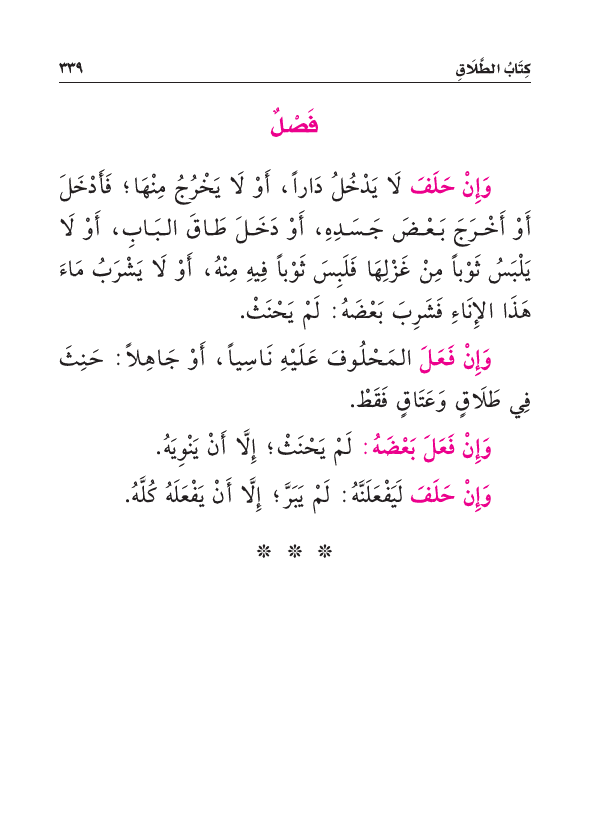 كِتَابُ الطَّلَاقِ ٣٣٩
فَصْلٌ
وَإِنْ حَلَفَ لَا يَدْخُلُ دَاراً، أَوْ لَا يَخْرُجُ مِنْهَا؛ فَأَدْخَلَ
أَوْ أَخْرَجَ بَعْضَ جَسَدِهِ، أَوْ دَخَلَ طَاقَ البَابِ، أَوْ لَا
يَلْبَسُ ثَوْباً مِنْ غَزْلِهَا فَلَبِسَ ثَوْباً فِيهِ مِنْهُ، أَوْ لَا يَشْرَبُ مَاءَ
هَذَا الإِنَاءِ فَشَرِبَ بَعْضَهُ: لَمْ يَحْنَثْ.
وَإِنْ فَعَلَ المَحْلُوفَ عَلَيْهِ نَاسِياً، أَوْ جَاهِلاً: حَنِثَ
فِي طَلَاقٍ وَعَتَاقٍ فَقَطْ.
وَإِنْ فَعَلَ بَعْضَهُ: لَمْ يَحْنَثْ؛ إِلَّا أَنْ يَنْوِيَهُ.
وَإِنْ حَلَفَ لَيَفْعَلَنَّهُ: لَمْ يَبَرَّ؛ إِلَّا أَنْ يَفْعَلَهُ كُلَّهُ.